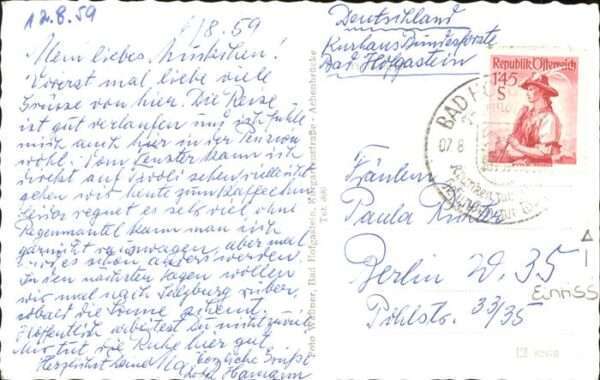 12.8.59
/8.59
Mein liebes
Vorerst mal liebe viele
Grüsse von hier. Die Reise
ist gut verlaufen und ich fühle
mich auch hier in der Pension
wohl. Vom Fenster kann ich
direkt auf Tivoli sehen vielleicht
gehen wir heute zum Kaffee hin
Leider regnet es sehr viel, ohne
Regenmantel kann man sich
garnicht rauswagen, aber mal
wird es schon anders werden.
In den nächsten Tagen wollen
wir mal nach Salzburg rüber,
sobald die Sonne scheint.
Hoffentlich arbeitest Du nicht zuviel
Mir tut die Ruhe hier gut.
Herzlichst Deine
Herzliche Grüße
Hamann
Foto Wallner, Bad Hofgastein, Kurgartenstraße - Achenbrücke
Tel. 400
Deutschland
Kurhaus Bundesforste
Bad Hofgastein
Republik Österreich
1.45
S
BAD HO
07.8
Fräulein
Paula
Berlin W. 35
Einriss
Pohlstr. 33/35